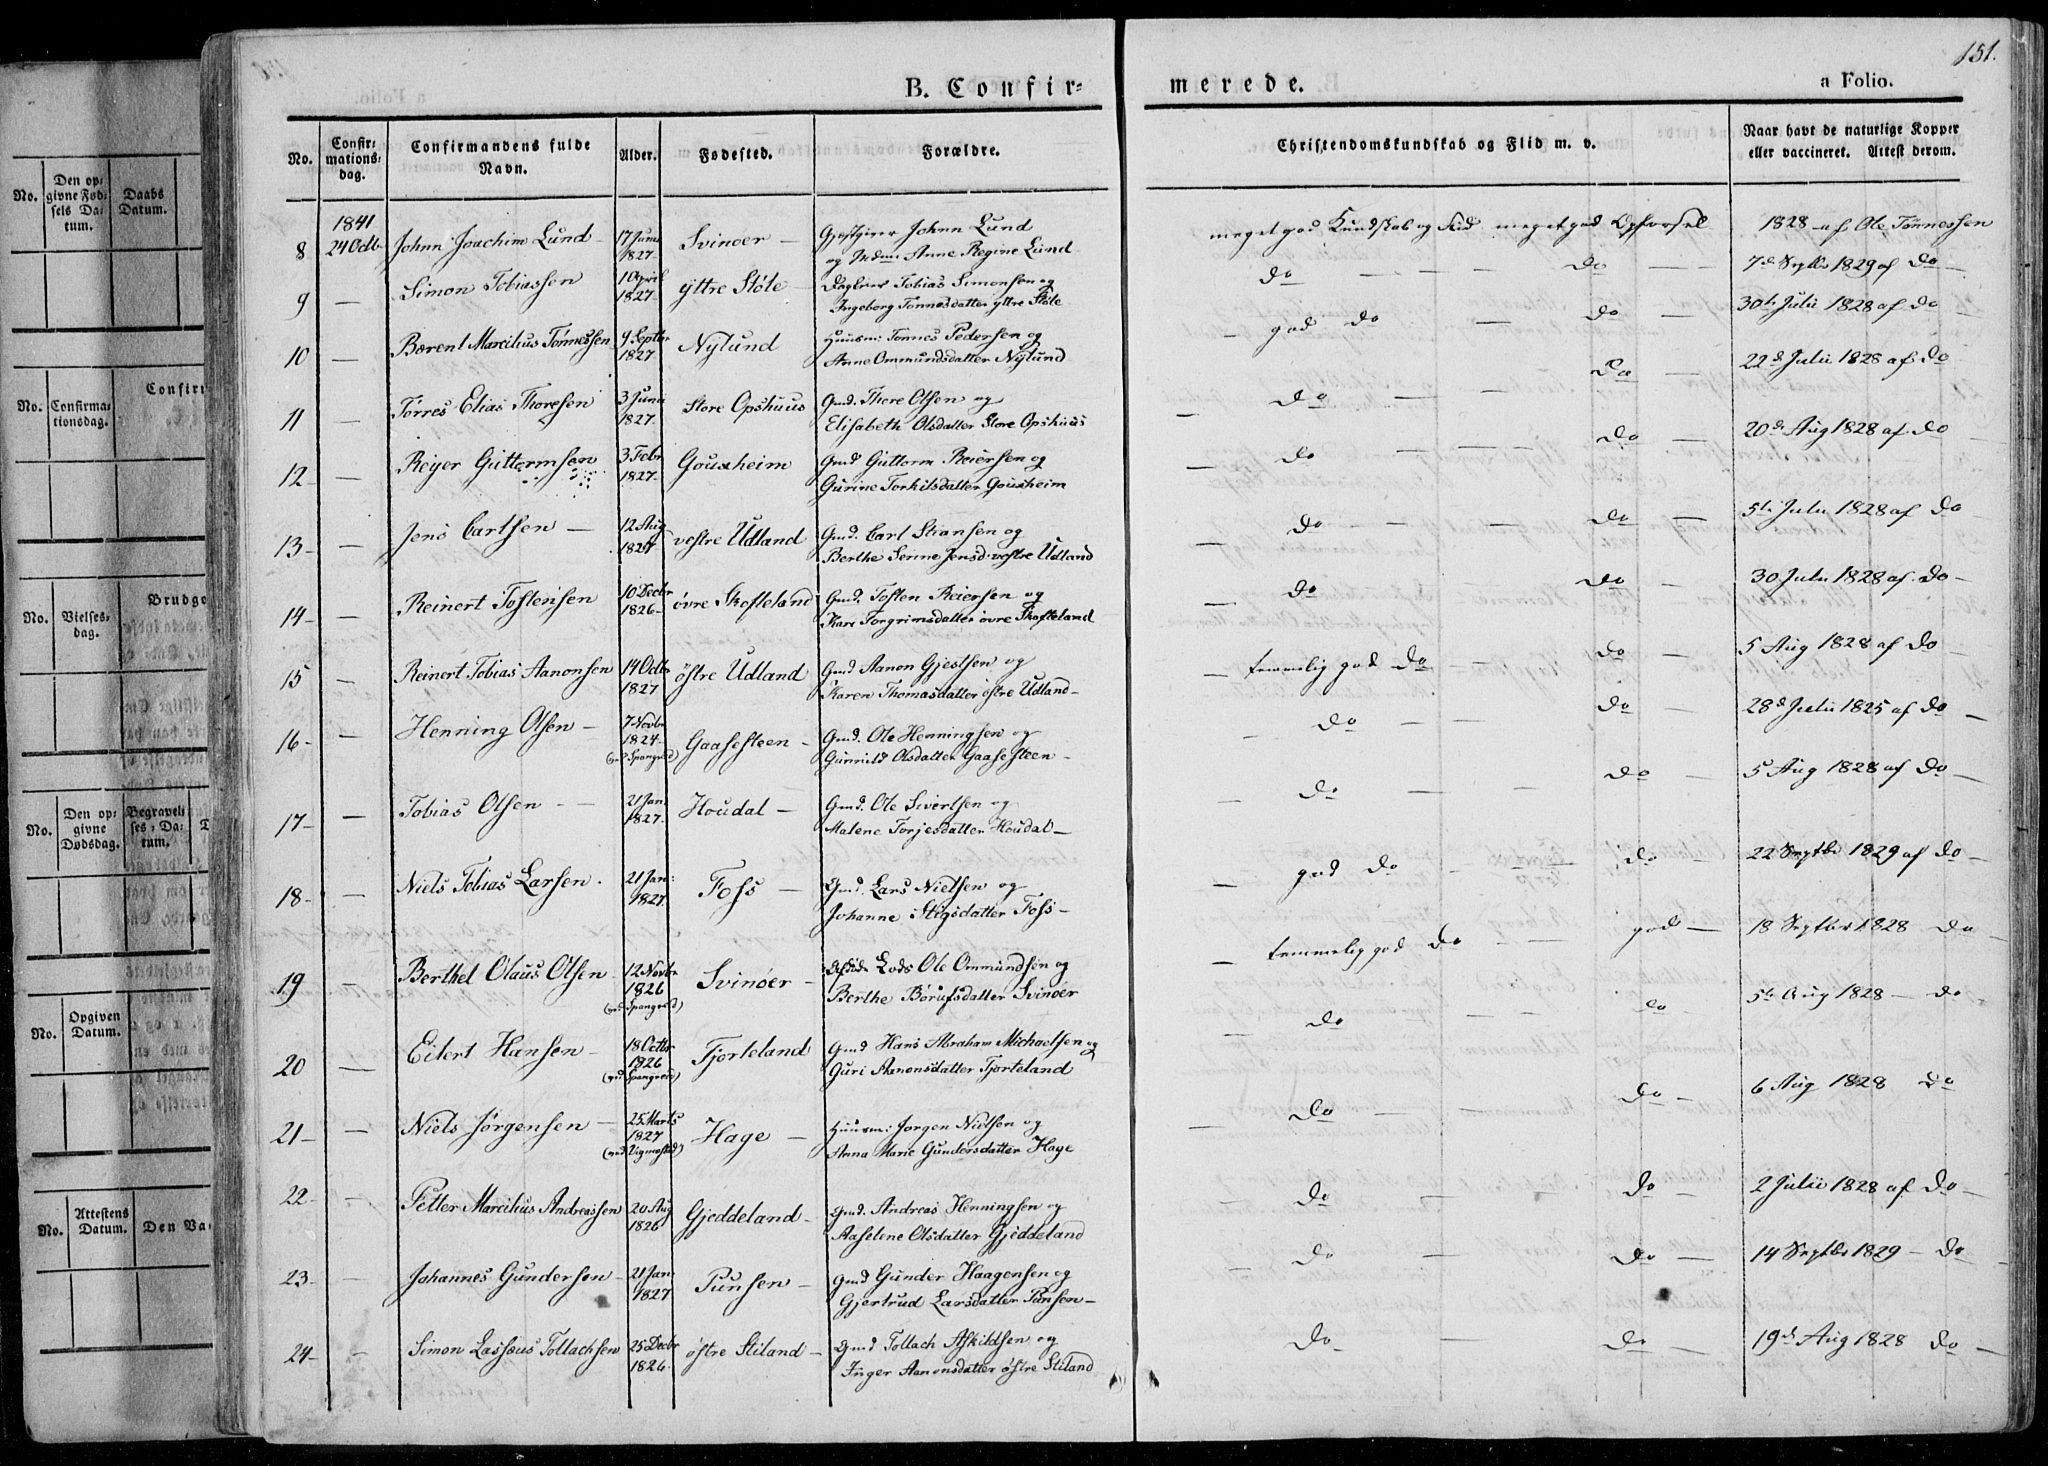 151.
B. Confirmerede.
a Folio.
No. | Confirmationsdag. | Confirmandens fulde Navn. | Alder. | Fødested. | Forældre. | Christendomskundskab og Flid m. v. | Naar havt de naturlige Kopper eller vaccineret. Attest derom.
1841
8 | 24 Octb. | Johnn Joachim Lund | 17 Juni 1827 | Svinoer | Gjestgiver Johnn Lund og Mdm: Anne Regine Lund | meget god Kundskab og Flid meget god Opførsel | 1828 af Ole Tønnessen
9 | — | Simon Tobiassen | 1 April 1827 | yttre Støle | Tobias Simonsen og Ingeborg Tønnesdatter yttre Støle | do — do | 7de Septbr 1829 af do
10 | — | Bærent Marcilius Tønnessen | 9 Septbr 1827 | Nylund | Huusm: Tønnes Pedersen og Anne Ommundsdatter Nylund | god do — do | 30te Julii 1828 af do
11 | — | Torres Elias Thoresen | 3 Juni 1827 | Store Opshuus | Gmd. Thore Olsen og Elisabeth Olsdatter Store Opshuus | do — do | 22d Julii 1828 af do
12 | — | Reyer Guttormsen | 3 Febr 1827 | Gouxheim | Gmd Guttorm Reiersen og Gurine Torkilsdatter Gouxheim | do — do | 20d Aug 1828 af do
13 | — | Jens Carlsen | 12 Aug 1827 | vestre Udland | Gmd. Carl Stiansen og Berthe Serine Jensd: vestre Udland | do — do | 5te Julii 1828 af do
14 | — | Reinert Tostensen | 10 Decbr 1826 | övre Skofteland | Gmd. Tosten Reiersen og Kari Torgrimsdatter övre Skofteland | do — do | 30 Julii 1828 af do
15 | — | Reinert Tobias Aanonsen | 14 Octbr 1827 | östre Udland | Gmd Aanon Gjestsen og Karen Thomasdatter östre Udland | temmelig god do — do | 5 Aug 1828 af do
16 | — | Henning Olsen | 7 Novbr 1824 (ved Spangreid) | Gaasesteen | Gmd. Ole Henningsen og Gunnild Olsdatter Gaasesteen | do — do | 28d Julii 1825 af do
17 | — | Tobias Olsen | 21 Jan. 1827 | Houdal | Gmd. Ole Sivertsen og Malene Torjesdatter Houdal | do — do | 5 Aug 1828 af do
18 | — | Niels Tobias Larsen | 21 Jan: 1827 | Foss | Gmd. Lars Nielsen og Johanne Stigsdatter Foss | god do — do | 22 Septbr 1829 af do
19 | — | Berthel Olaus Olsen | 12 Novbr 1826 (ved Spangreid) | Svinöer | Lods Ole Ommundsen og Berthe Börufsdatter Svinöer | temmelig god do — god | 18 Septbr 1828 do
20 | — | Eilert Hansen | 18 Octbr 1826 (ved Spangreid) | Fjorteland | Gmd Hans Abraham Michaelsen og Guri Aanonsdatter Fjorteland | do — do | 5te Aug 1828 do
21 | — | Niels Jørgensen | 25 Marts 1827 (ved Vigmostad) | Hage | Huusm: Jorgen Nielsen og Anna Marie Gundersdatter Hage | do — do | 6 Aug 1828 do
22 | — | Petter Marcilius Andreassen | 20 Aug 1826 | Gjeddeland | Gmd. Andreas Henningsen og Aaselene Olsdatter Gjeddeland | do — do | 2 Julii 1828 af do
23 | — | Johannes Gundersen | 21 Jan 1827 | Punsen | Gmd Gunder Haagensen og Gjertrud Larsdatter Punsen | do — do | 14 Septbr 1829 do
24 | — | Simon Lassæus Tollachsen | 25 Decbr 1826 | östre Stiland | Gmd Tollach Askildsen og Inger Aanonsdatter östre Stiland | do — do | 19d Aug 1828 do
No. | Den opgivne Fødsels Datum. | Daabs Datum.
Confir
No. | Confirmationsdag.
Brudgo
No. | Vielsesdag.
No. | Den opgivne Dødsdag. | Begravelses-Datum.
No. | Opgiven Datum.
No. | Attestens Datum. | Den Va